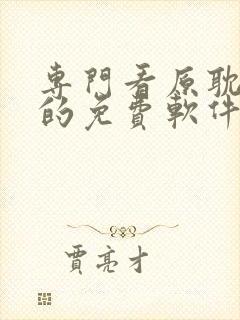 專門看原耽
的免費軟件
賈亮才